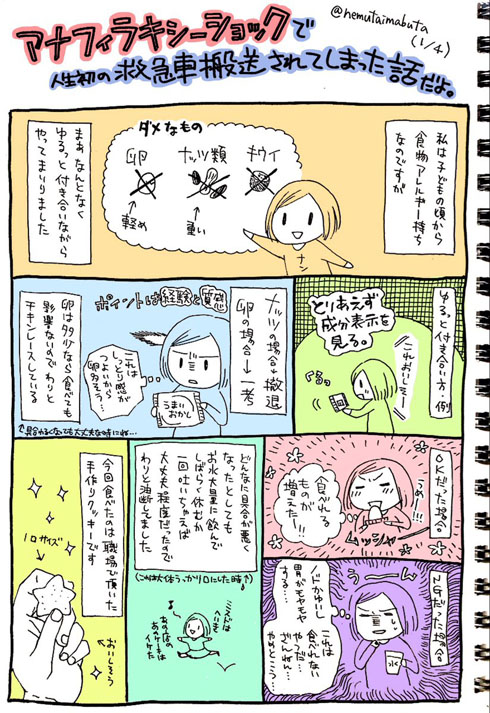 @nemutaimabuta
(1/4)
アナフィラキシーショックで
人生初の救急車搬送されてしまった話だよ。
私は子どもの頃から
食物アレルギー持ち
なのですが
ダメなもの
卵
ナッツ類
キウイ
軽め
重い
ナン
まあなんとなく
ゆるっと付き合いながら
やってまいりました
ゆるっと付き合い方・例
とりあえず
成分表示を
見る。
これおいしそー
ポイントは経験と質感
ナッツの場合→撤退
卵の場合→一考
これは
しっとり感が
つよいから
卵多そう…
うまい
おかし
卵は多少なら食べても
影響ないので わりと
チキンレースしている
OKだった場合
うめー!!!
食べれる
ものが
増えた!!
ムッシャ
NGだった場合
う〜ん
ノドかゆいし
胃がモヤモヤ
する…
これは
食べれない
やつだ…
ざんねん…
やめとこう…
水
どんなに具合が悪く
なったとしても
お水大量に飲んで
しばらく休むか
一回吐いちゃえば
大丈夫程度だったので
わりと油断してました
今回食べたのは職場で頂いた
手作りクッキーです
1口サイズ
おいしそう